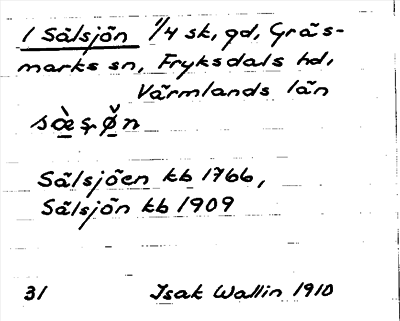 1 Sälsjön 1/4 sk, gd, Gräs-
marks sn, Fryksdals hd,
Värmlands län
Sälsjöen kb 1766,
Sälsjön kb 1909
31 Isak Wallin 1910